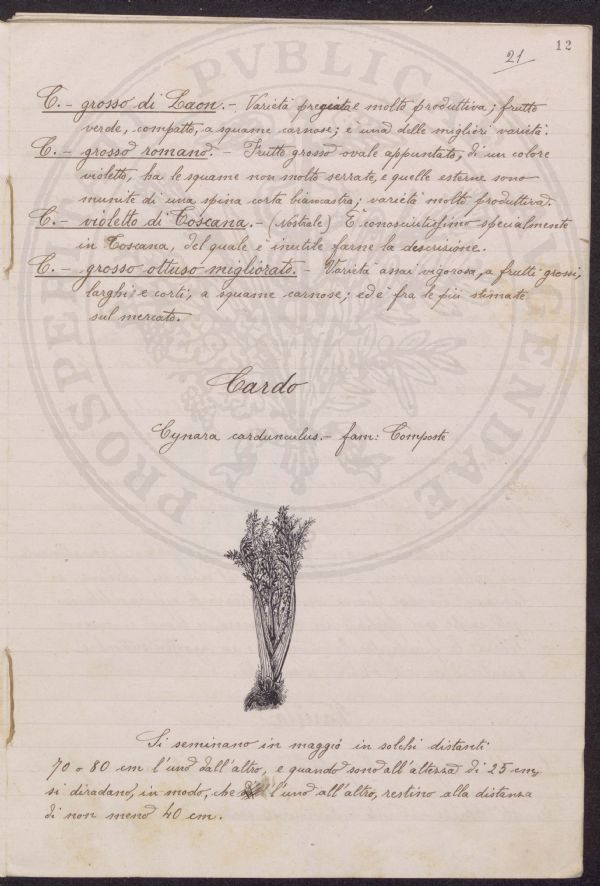 12
21
C. - grosso di Laon. - Varietà pregiata e molto produttiva; frutto
verde, compatto, a squame carnose; è una delle migliori varietà.
C. - grosso romano. - Frutto grosso ovale appuntato, di un colore
violetto, ha le squame non molto serrate, e quelle esterne sono
munite di una spina corta biancastra; varietà molto produttiva.
C. - violetto di Toscana. - (Nostrale) È conosciutissimo specialmente
in Toscana, del quale è inutile farne la descrizione.
C. - grosso ottuso migliorato. - Varietà assai vigorosa, a frutti grossi,
larghi e corti, a squame carnose; ed è fra le più stimate
sul mercato.
Cardo
Cynara cardunculus. - fam: Composte
Si seminano in maggio in solchi distanti
70 o 80 cm l'uno dall'altro, e quando sono all'altezza di 25 cm,
si diradano, in modo, che l'uno all'altro, restino alla distanza
di non meno 40 cm.
PVBLICAE
PROSPERITATI AVGENDAE